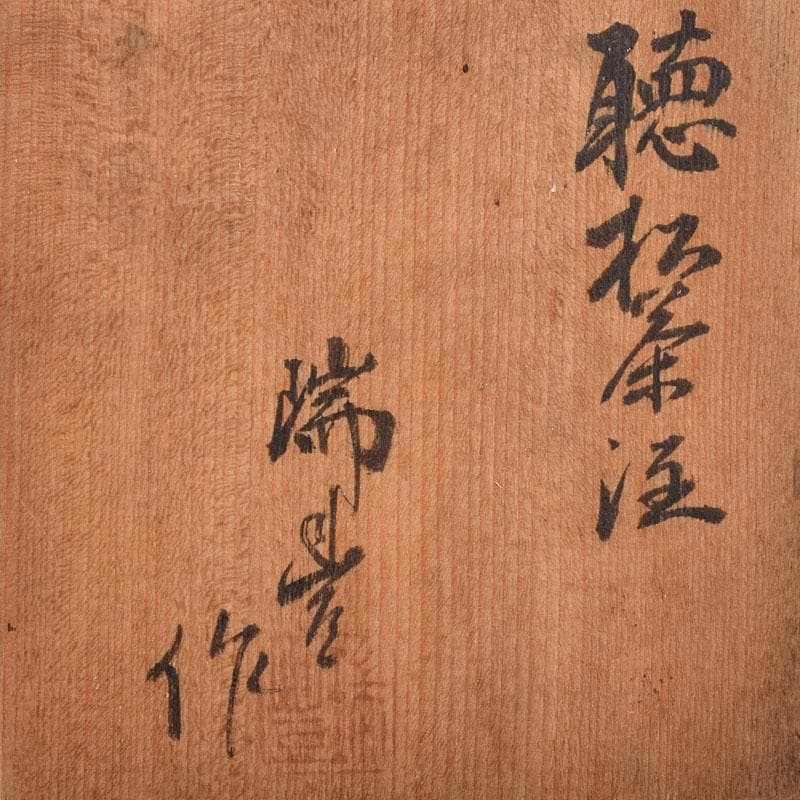 聴松茶注
瑞豊
作